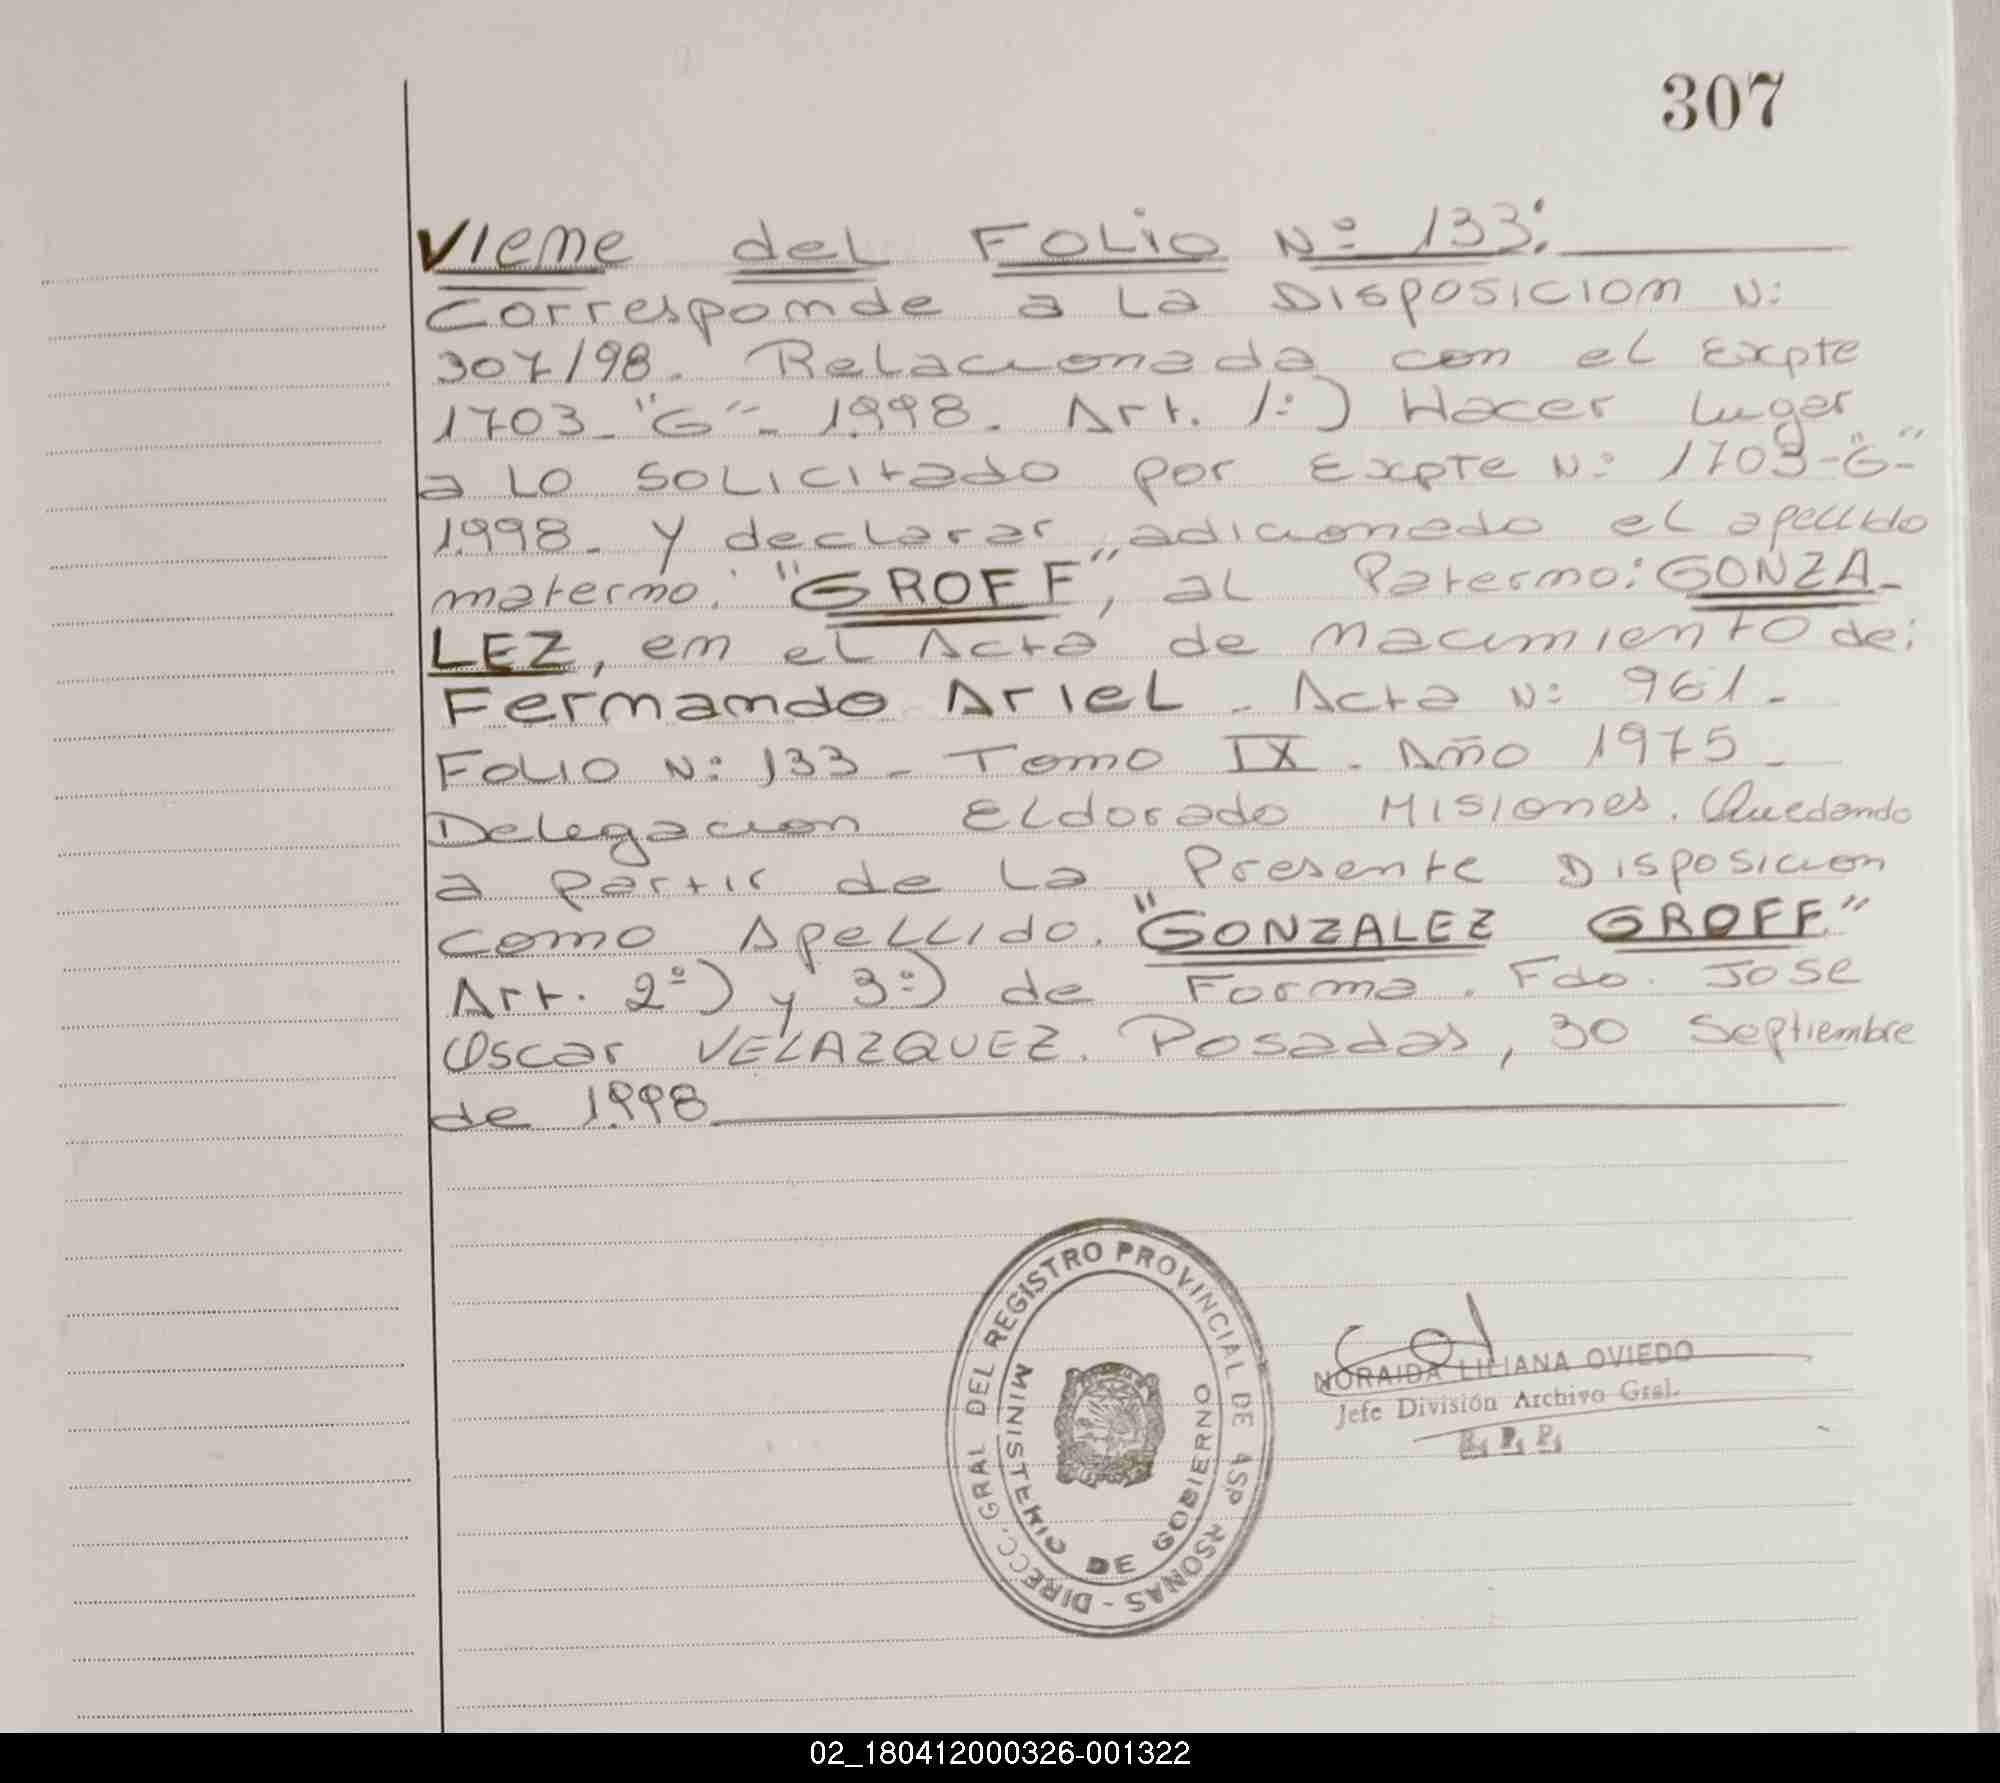 307
Viene del Folio Nº 133:
Corresponde a la Disposicion Nº
307/98. Relacionada con el Expte
1703-"G"-1.998. Art. 1º) Hacer lugar
a lo solicitado por Expte Nº 1703-"G"-
1.998. y declarar, adicionado el apellido
materno: "GROFF", al Paterno: GONZA-
LEZ, en el Acta de nacimiento de:
Fernando Ariel - Acta Nº 961 -
Folio Nº 133 - Tomo IX - Año 1975 -
Delegacion Eldorado Misiones. Quedando
a partir de la Presente Disposicion
como Apellido. "GONZALEZ GROFF"
Art. 2º) y 3º) de Forma. Fdo. Jose
Oscar VELAZQUEZ. Posadas, 30 Septiembre
de 1.998
DIRECC. GRAL DEL REGISTRO PROVINCIAL DE
MINISTERIO DE GOBIERNO
NORAIDA LILIANA OVIEDO
Jefe División Archivo Gral.
R. P. P.
02_180412000326-001322